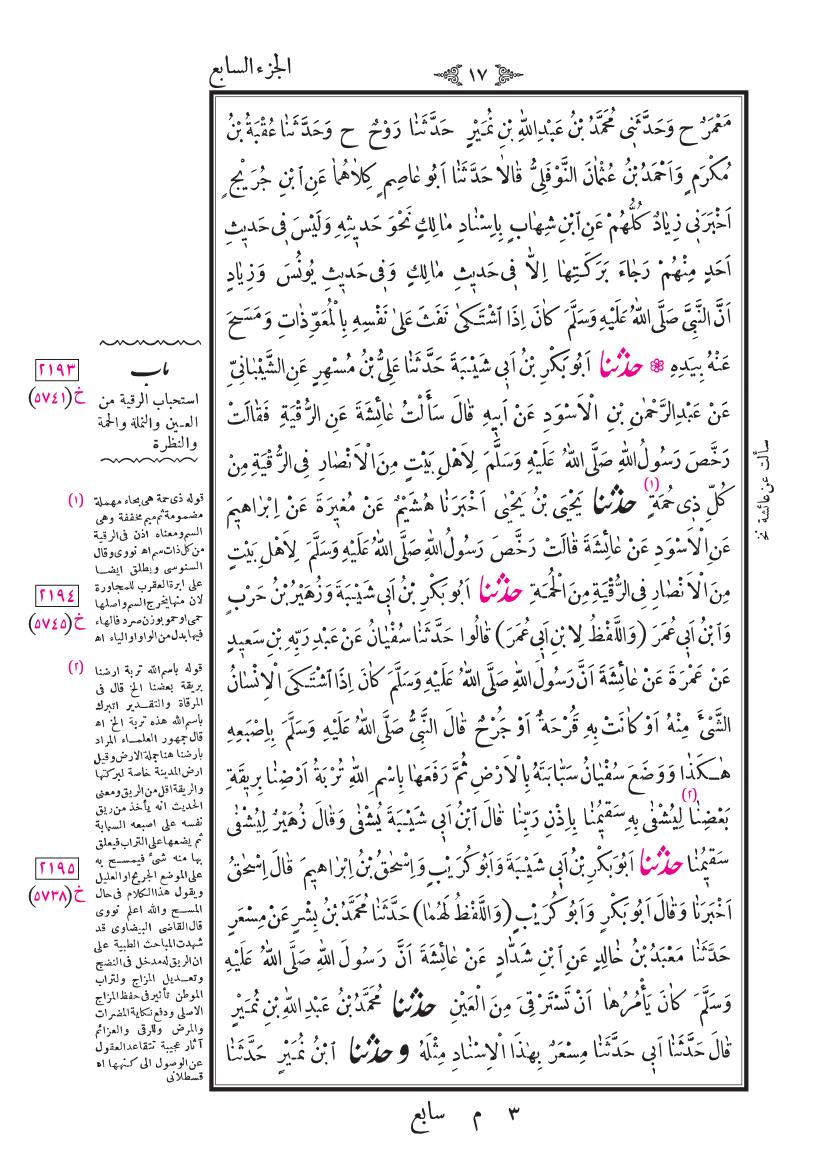 الجزء السابع
١٧
مَعْمَرٌ ح وَحَدَّثَنِي مُحَمَّدُ بْنُ عَبْدِ اللهِ بْنِ نُمَيْرٍ حَدَّثَنَا رَوْحٌ ح وَحَدَّثَنَا عُقْبَةُ بْنُ
مُكْرَمٍ وَاَحْمَدُ بْنُ عُثْمَانَ النَّوْفَلِيُّ قَالَا حَدَّثَنَا اَبُو عَاصِمٍ كِلَاهُمَا عَنِ ابْنِ جُرَيْجٍ
اَخْبَرَنِي زِيَادٌ كُلُّهُمْ عَنِ ابْنِ شِهَابٍ بِاِسْنَادِ مَالِكٍ نَحْوَ حَدِيثِهِ وَلَيْسَ فِي حَدِيثِ
اَحَدٍ مِنْهُمْ رَجَاءَ بَرَكَتِهَا اِلَّا فِي حَدِيثِ مَالِكٍ وَفِي حَدِيثِ يُونُسَ وَزِيَادٍ
اَنَّ النَّبِيَّ صَلَّى اللهُ عَلَيْهِ وَسَلَّمَ كَانَ اِذَا اشْتَكَى نَفَثَ عَلَى نَفْسِهِ بِالْمُعَوِّذَاتِ وَمَسَحَ
عَنْهُ بِيَدِهِ ۞ حدثنا اَبُو بَكْرِ بْنُ اَبِي شَيْبَةَ حَدَّثَنَا عَلِيُّ بْنُ مُسْهِرٍ عَنِ الشَّيْبَانِيِّ
عَنْ عَبْدِ الرَّحْمٰنِ بْنِ الْاَسْوَدِ عَنْ اَبِيهِ قَالَ سَأَلْتُ عَائِشَةَ عَنِ الرُّقْيَةِ فَقَالَتْ
رَخَّصَ رَسُولُ اللهِ صَلَّى اللهُ عَلَيْهِ وَسَلَّمَ لِاَهْلِ بَيْتٍ مِنَ الْاَنْصَارِ فِي الرُّقْيَةِ مِنْ
كُلِّ ذِي حُمَةٍ (١) حدثنا يَحْيَى بْنُ يَحْيَى اَخْبَرَنَا هُشَيْمٌ عَنْ مُغِيرَةَ عَنْ اِبْرَاهِيمَ
عَنِ الْاَسْوَدِ عَنْ عَائِشَةَ قَالَتْ رَخَّصَ رَسُولُ اللهِ صَلَّى اللهُ عَلَيْهِ وَسَلَّمَ لِاَهْلِ بَيْتٍ
مِنَ الْاَنْصَارِ فِي الرُّقْيَةِ مِنَ الْحُمَةِ حدثنا اَبُو بَكْرِ بْنُ اَبِي شَيْبَةَ وَزُهَيْرُ بْنُ حَرْبٍ
وَابْنُ اَبِي عُمَرَ (وَاللَّفْظُ لِابْنِ اَبِي عُمَرَ) قَالُوا حَدَّثَنَا سُفْيَانُ عَنْ عَبْدِ رَبِّهِ بْنِ سَعِيدٍ
عَنْ عَمْرَةَ عَنْ عَائِشَةَ اَنَّ رَسُولَ اللهِ صَلَّى اللهُ عَلَيْهِ وَسَلَّمَ كَانَ اِذَا اشْتَكَى الْاِنْسَانُ
الشَّيْءَ مِنْهُ اَوْ كَانَتْ بِهِ قُرْحَةٌ اَوْ جُرْحٌ قَالَ النَّبِيُّ صَلَّى اللهُ عَلَيْهِ وَسَلَّمَ بِاِصْبَعِهِ
هٰكَذَا وَوَضَعَ سُفْيَانُ سَبَّابَتَهُ بِالْاَرْضِ ثُمَّ رَفَعَهَا بِاسْمِ اللهِ تُرْبَةُ اَرْضِنَا بِرِيقَةِ
بَعْضِنَا (٢) لِيُشْفَى بِهِ سَقِيمُنَا بِاِذْنِ رَبِّنَا قَالَ ابْنُ اَبِي شَيْبَةَ يُشْفَى وَقَالَ زُهَيْرٌ لِيُشْفَى
سَقِيمُنَا حدثنا اَبُو بَكْرِ بْنُ اَبِي شَيْبَةَ وَاَبُو كُرَيْبٍ وَاِسْحٰقُ بْنُ اِبْرَاهِيمَ قَالَ اِسْحٰقُ
اَخْبَرَنَا وَقَالَ اَبُو بَكْرٍ وَاَبُو كُرَيْبٍ (وَاللَّفْظُ لَهُمَا) حَدَّثَنَا مُحَمَّدُ بْنُ بِشْرٍ عَنْ مِسْعَرٍ
حَدَّثَنَا مَعْبَدُ بْنُ خَالِدٍ عَنِ ابْنِ شَدَّادٍ عَنْ عَائِشَةَ اَنَّ رَسُولَ اللهِ صَلَّى اللهُ عَلَيْهِ
وَسَلَّمَ كَانَ يَأْمُرُهَا اَنْ تَسْتَرْقِيَ مِنَ الْعَيْنِ حدثنا مُحَمَّدُ بْنُ عَبْدِ اللهِ بْنِ نُمَيْرٍ
قَالَ حَدَّثَنَا اَبِي حَدَّثَنَا مِسْعَرٌ بِهٰذَا الْاِسْنَادِ مِثْلَهُ وحدثنا ابْنُ نُمَيْرٍ حَدَّثَنَا
سألت عن عائشة نخ
باب
استحباب الرقية من
العين والنملة والحمة
والنظرة
٢١٩٣
خ (٥٧٤١)
(١)
قوله ذى حمة هى بحاء مهملة
مضمومة ثم ميم مخففة وهى
السم ومعناه اذن فى الرقية
من كل ذات سم اه نووى وقال
السنوسى ويطلق ايضا
على ابرة العقرب للمجاورة
لان منها يخرج السم واصلها
حمى او حمو بوزن صرد فالهاء
فيها بدل من الواو او الياء اه
٢١٩٤
خ (٥٧٤٥)
(٢)
قوله باسم الله تربة ارضنا
بريقة بعضنا الخ قال فى
المرقاة والتقدير اتبرك
باسم الله هذه تربة الخ اه
قال جمهور العلماء المراد
بارضنا هنا جملة الارض وقيل
ارض المدينة خاصة لبركتها
والريقة اقل من الريق ومعنى
الحديث انه يأخذ من ريق
نفسه على اصبعه السبابة
ثم يضعها على التراب فيعلق
بها منه شئ فيمسح به
على الموضع الجريح او العليل
ويقول هذا الكلام فى حال
المسح والله اعلم نووى
قال القاضى البيضاوى قد
شهدت المباحث الطبية على
ان الريق له مدخل فى النضج
وتعديل المزاج ولتراب
الموطن تأثير فى حفظ المزاج
الاصلى ودفع نكاية المضرات
والمرض وللرقى والعزائم
آثار عجيبة تتقاعد العقول
عن الوصول الى كنهها اه
قسطلانى
٢١٩٥
خ (٥٧٣٨)
٣ م سابع